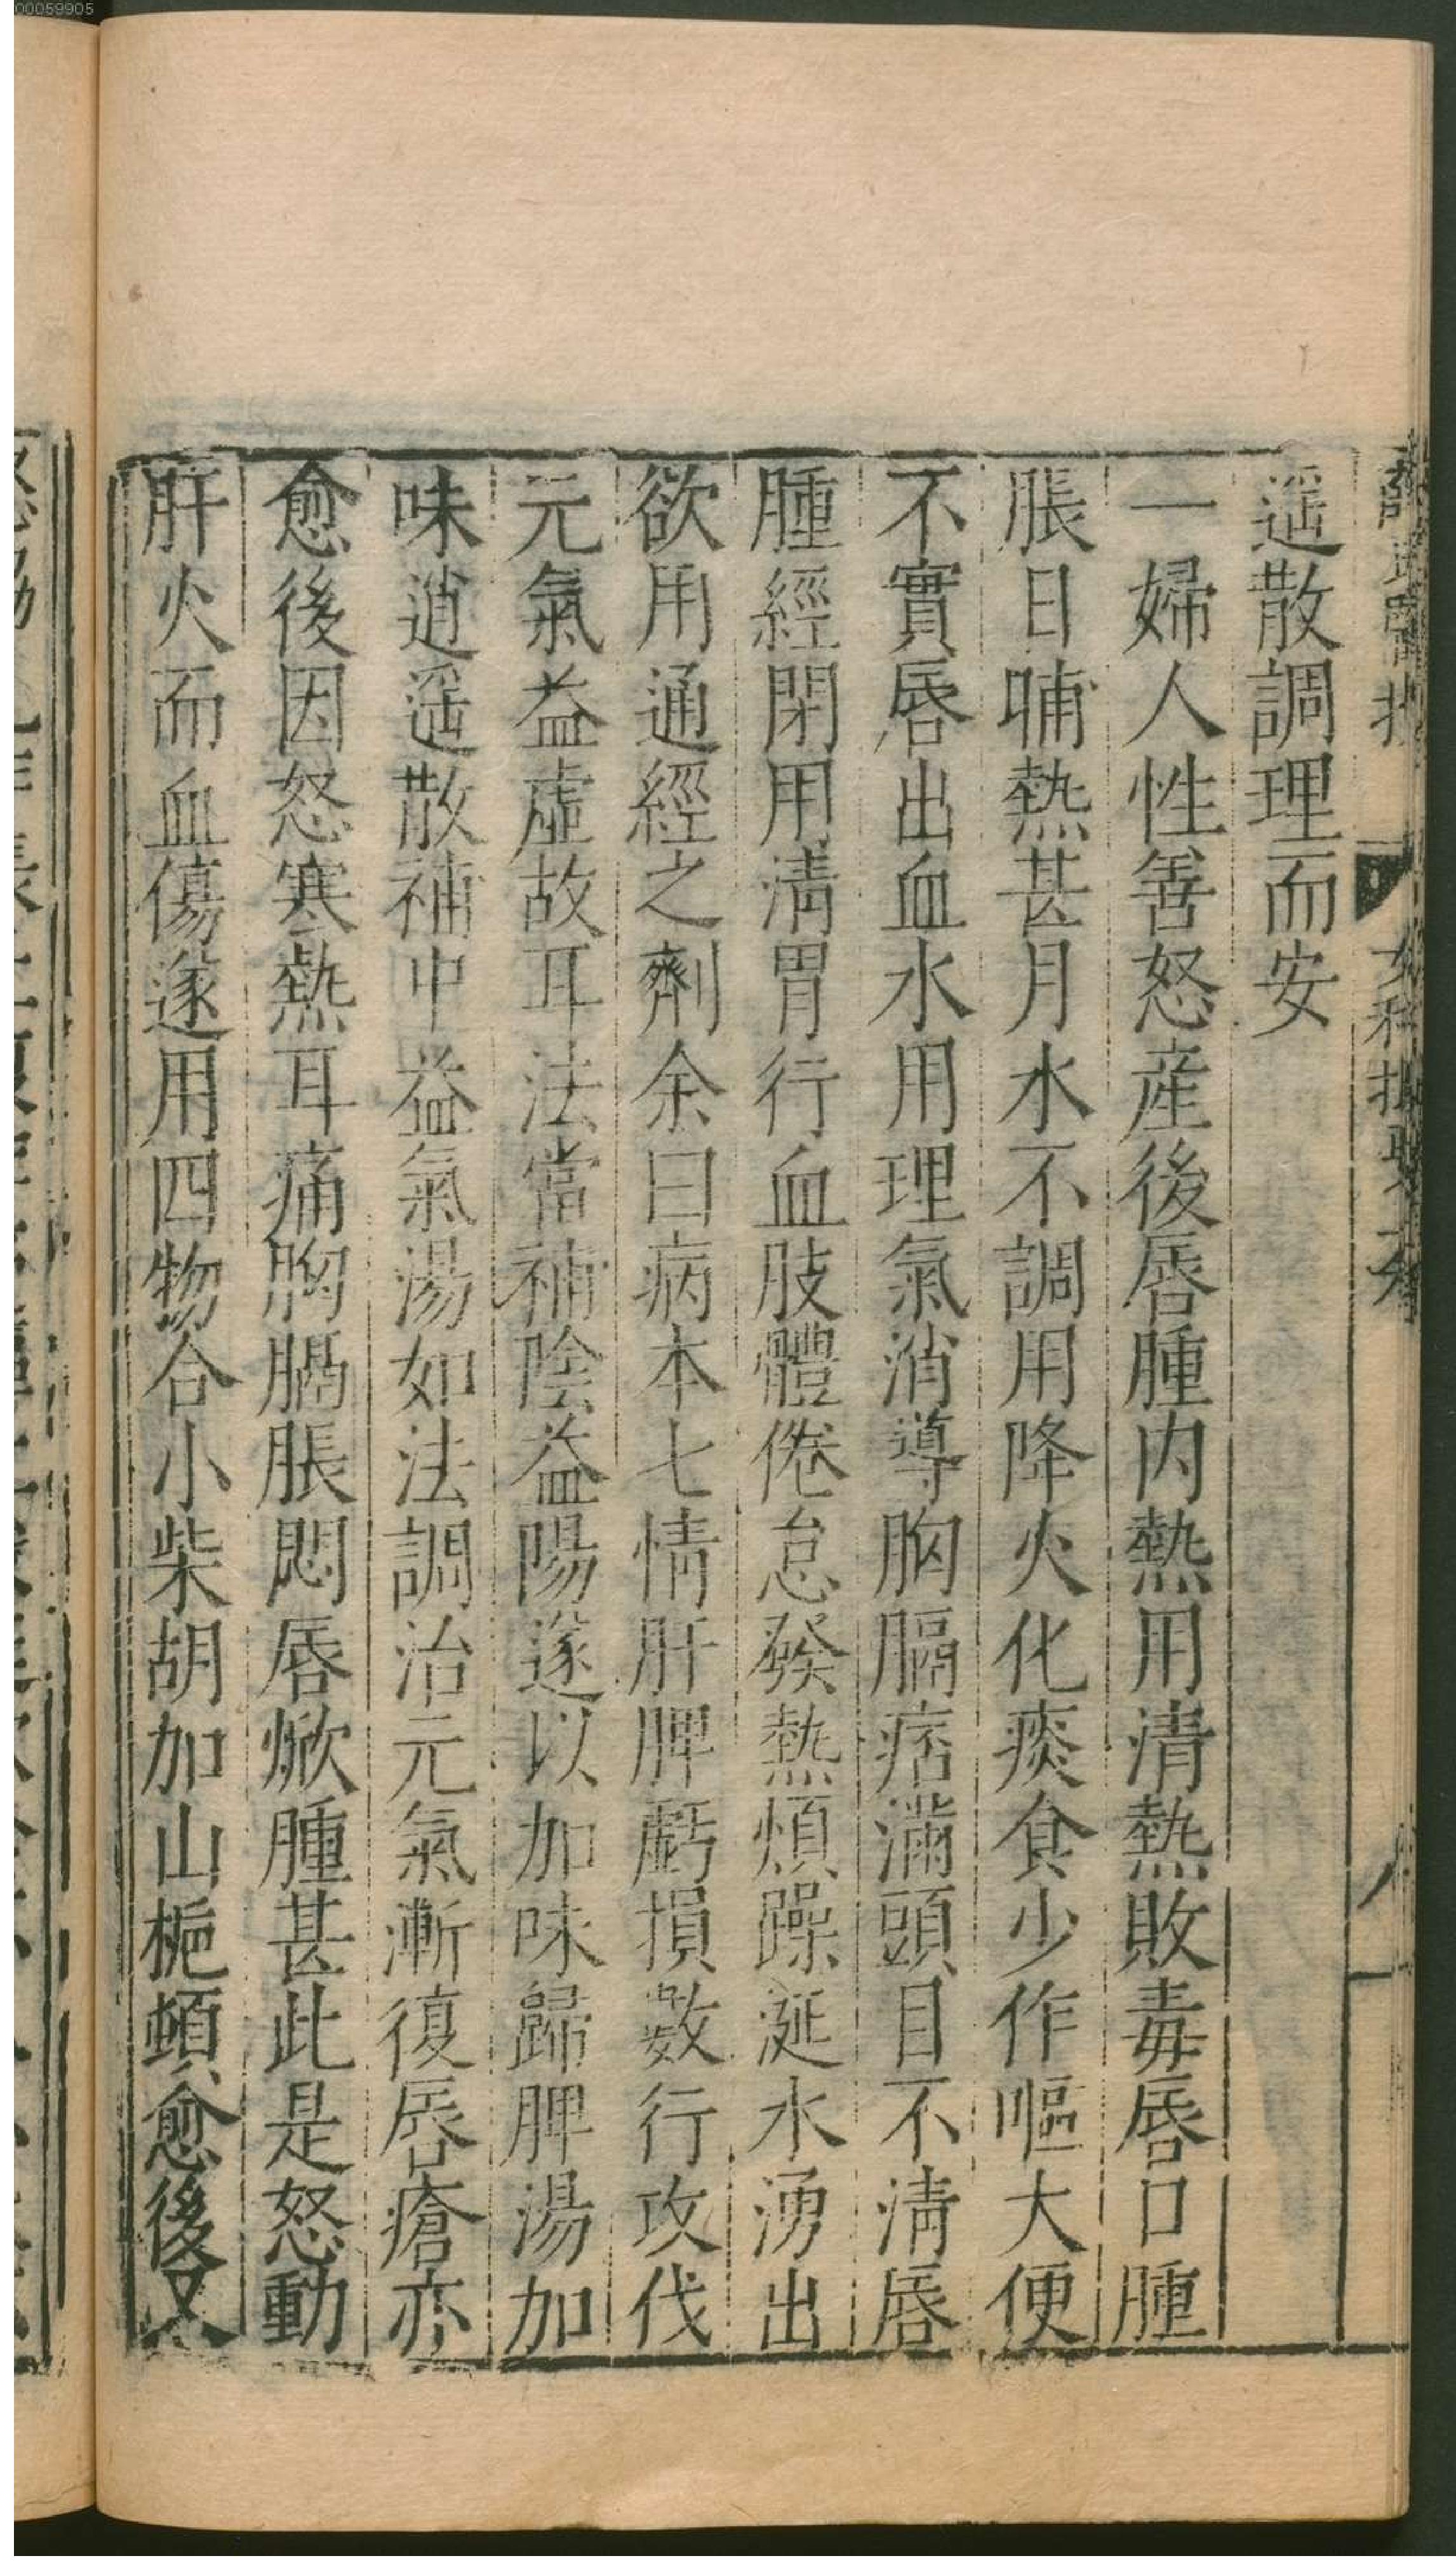 00059905
遥散調理而安
一婦人性善怒産後唇腫内熱用清熱敗毒唇口腫
脹日晡熱甚月水不調用降火化痰食少作嘔大便
不實唇出血水用理氣消導胸膈痞滿頭目不清唇
腫經閉用清胃行血肢體倦怠發熱煩躁涎水湧出
欲用通經之劑余曰病本七情肝脾虧損數行攻伐
元氣益虛故耳法當補陰益陽遂以加味歸脾湯加
味逍遥散補中益氣湯如法調治元氣漸復唇瘡亦
愈後因怒寒熱耳痛胸膈脹悶唇焮腫甚此是怒動
肝火而血傷遂用四物合小柴胡加山梔頓愈後又